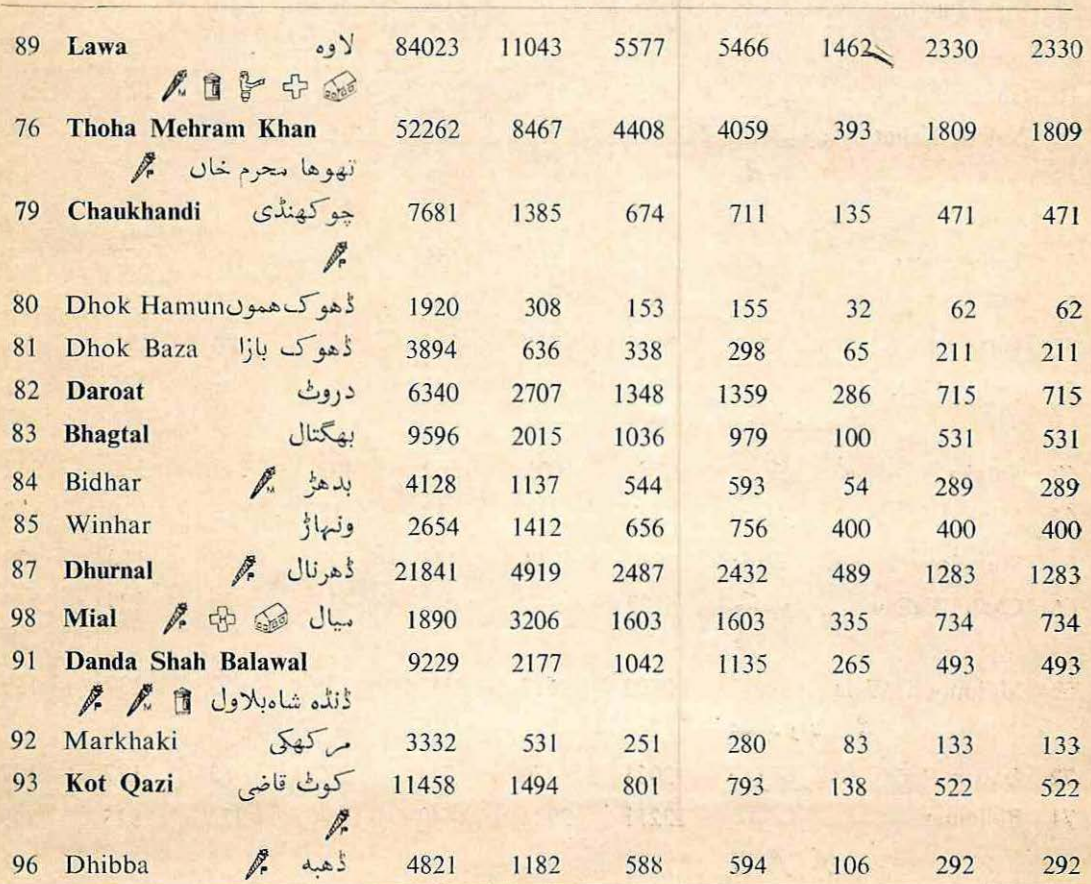 89 Lawa لاوہ 84023 11043 5577 5466 1462 2330 2330
76 Thoha Mehram Khan 52262 8467 4408 4059 393 1809 1809
تھوھا محرم خاں
79 Chaukhandi چوکھنڈی 7681 1385 674 711 135 471 471
80 Dhok Hamun ڈھوک ھموں 1920 308 153 155 32 62 62
81 Dhok Baza ڈھوک بازا 3894 636 338 298 65 211 211
82 Daroat دروٹ 6340 2707 1348 1359 286 715 715
83 Bhagtal بھگتال 9596 2015 1036 979 100 531 531
84 Bidhar بدھڑ 4128 1137 544 593 54 289 289
85 Winhar ونہاڑ 2654 1412 656 756 400 400 400
87 Dhurnal ڈھرنال 21841 4919 2487 2432 489 1283 1283
98 Mial میال 1890 3206 1603 1603 335 734 734
91 Danda Shah Balawal 9229 2177 1042 1135 265 493 493
ڈنڈہ شاہ بلاول
92 Markhaki مرکھکی 3332 531 251 280 83 133 133
93 Kot Qazi کوٹ قاضی 11458 1494 801 793 138 522 522
96 Dhibba ڈھبہ 4821 1182 588 594 106 292 292